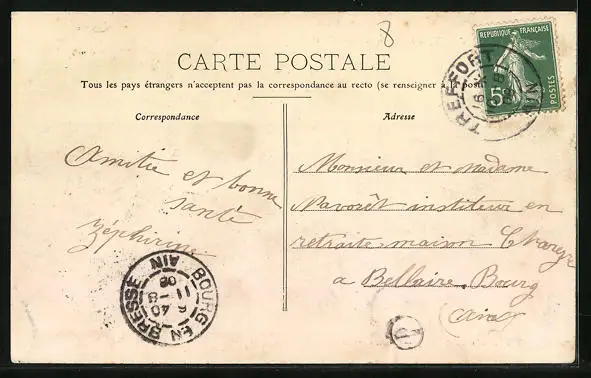 8
CARTE POSTALE
Tous les pays étrangers n'acceptent pas la correspondance au recto (se renseigner à la poste
Correspondance
Adresse
REPUBLIQUE FRANÇAISE
5
POSTES
TREFFORT
AIN
Amitié et bonne
santé
Zéphirine
Monsieur et madame
instituteur en
retraite maison
a Bellaire Bourg
(Ain)
BOURG EN BRESSE
AIN